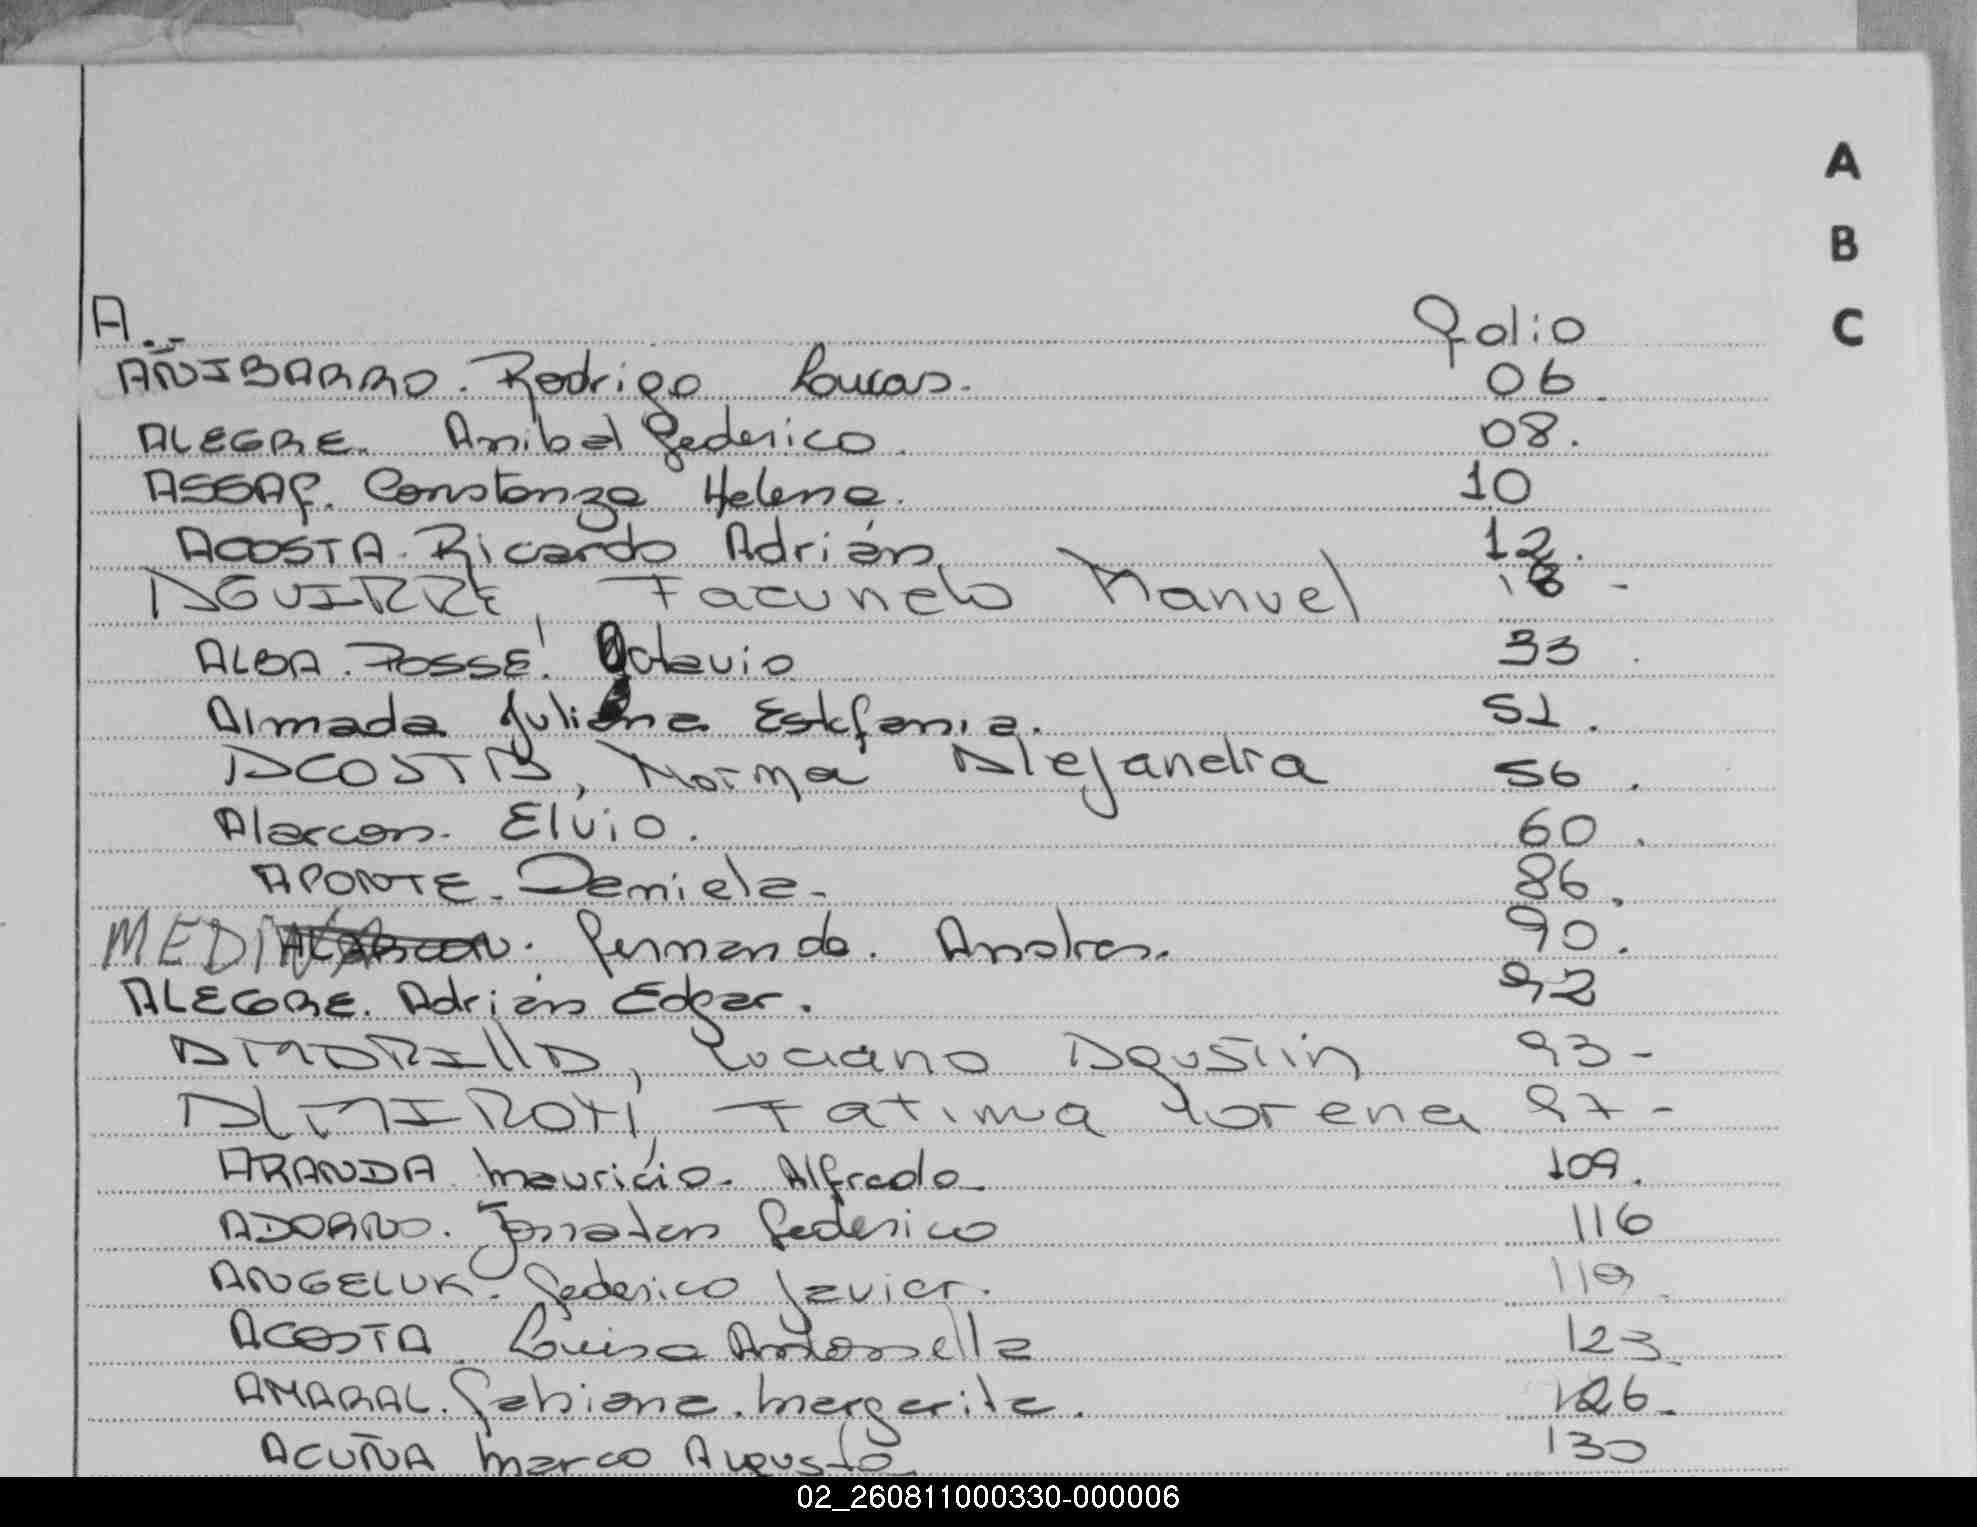 A
B
C
A.- Folio
AÑIBARRO. Rodrigo Loucas. 06
ALEGRE. Anibal Federico. 08.
ASSAF. Constanza Helena. 10
ACOSTA. Ricardo Adrián 12.
AGUIRRE, Facundo Manuel 18 -
ALBA. POSSE. Octavio 33
Almada Juliana Estefania. 51.
ACOSTA, Norma Alejandra 56.
Alarcon. Elvio. 60.
APONTE. Daniela. 86.
MEDINA. Fernando. Andres. 90.
ALEGRE. Adrián Edgar. 92
AMARILLA, Luciano Agustin 93 -
ALMIRON, Fatima Lorena 97 -
ARANDA Mauricio. Alfredo. 109.
ADORNO. Jonatan Federico 116
ANGELUK. Federico Javier. 119
ACOSTA Luisa Antonella 123
AMARAL. Fabiana. Margarita. 126.
ACUÑA Marco Augusto 130
02_260811000330-000006